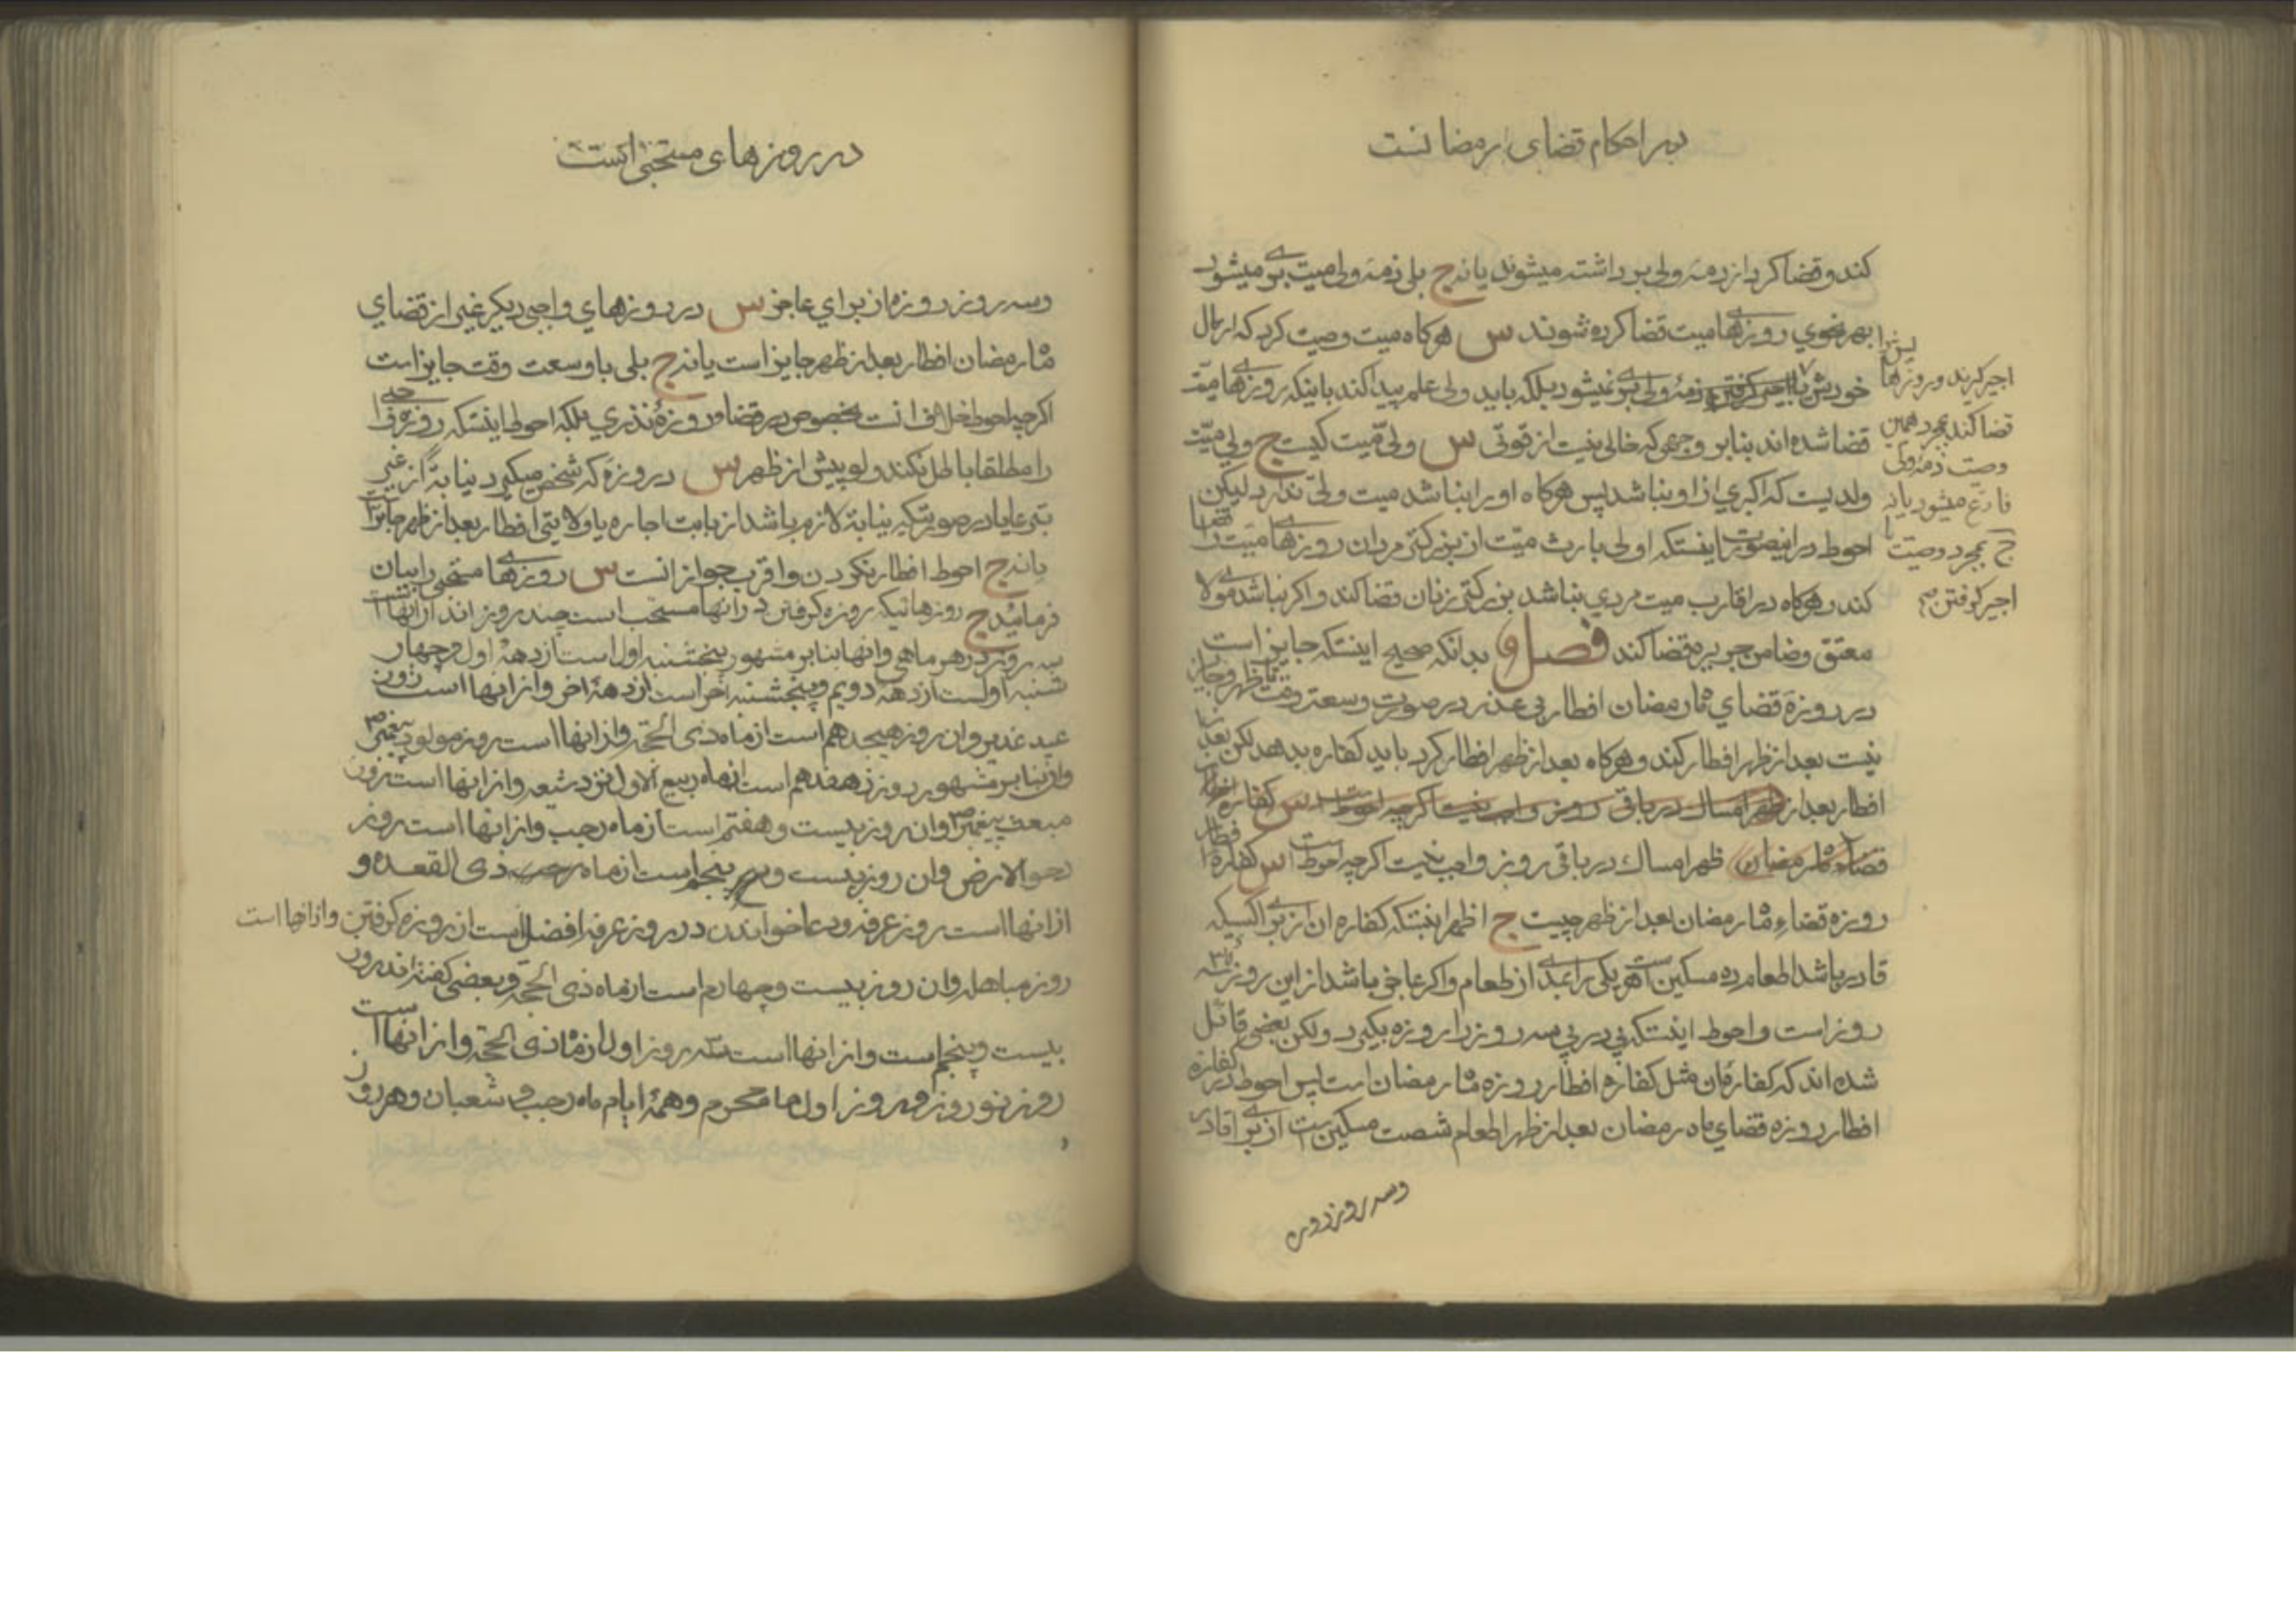 در احکام قضای رمضانست
کند و قضا کرد از ذمه ولی برداشته میشوند یا نه ج بلی ذمه ولی میت بری میشود
بهر نحوی روزهای میت قضا کرده شوند س هرکاه میت وصیت کرد که از مال
خودش ذمهٔ ولی بری نمیشود بلکه باید ولی علم پیدا کند باینکه روزهای میت
قضا شده اند بنابر وجهی که خالی نیست از قوتی س ولی میت کیست ج ولی میت
ولدیست که اکبری از او نباشد پس هرکاه اورا نباشد میت ولی ندارد لیکن
احوط در اینصورت اینستکه اولی بارث میت از بزرکتر مردان روزهای میت را قضا
کند و هرکاه در اقارب میت مردی نباشد بزرکتر زنان قضا کند و اکر نباشد مولای
معتق و ضامن جریره قضا کند فصل بدانکه صحیح اینستکه جایز است
در روزهٔ قضای ماه رمضان افطار بی عذر در صورت وسعت وقت تا ظهر و جایز
نیست بعد از ظهر افطار کند و هرکاه بعد از ظهر افطار کرد باید کفاره بدهد لکن بعد از
افطار بعد از ظهر امساک در باقی روز واجب نیست اکرچه احوط است س کفاره افطار
قضاء ماه رمضان ظهر امساک در باقی روز واجب نیست اکرچه احوط است س کفارهٔ افطار
روزه قضاء ماه رمضان بعد از ظهر چیست ج اظهر اینستکه کفاره ان از برای کسیکه
قادر باشد اطعام ده مسکین است هر یکی را بمدی از طعام و اکر عاجز باشد از این روزه سه
روز است و احوط اینستکه پی در پی سه روز را روزه بکیرد ولکن بعضی قائل
شده اند که کفاره ان مثل کفارهٔ افطار روزه ماه رمضان است پس احوط در کفاره
افطار روزه قضای ماه رمضان بعد از ظهر اطعام شصت مسکین است از برای قادر
وسه روز روزه
اجیر کیرند و روزها را
قضا کند بمجرد همین
وصیت ذمه ولی
فارغ میشود یا نه
ج بمجرد وصیت با
اجیر کرفتن
در روزهای مستحبی است
وسه روز روزه از برای عاجز س در روزهای واجبی دیکر غیر از قضای
ماه رمضان افطار بعد از ظهر جایز است یا نه ج بلی با وسعت وقت جایز است
اکرچه احوط خلاف انست بخصوص در قضا و روزهٔ نذری بلکه احوط اینستکه روزه
را مطلقا باطل نکند ولو پیش از ظهر س در روزهٔ که شخص میکیرد نیابة از غیر
تبرعا یا در صورتیکه نیابة لازم باشد از بابت اجاره یا ولایتی افطار بعد از ظهر جایز است
یا نه ج احوط افطار نکردن و اقرب جواز انست س روزهای مستحبی را بیان
فرمائید ج روزهائیکه روزه کرفتن در انها مستحب است چند روز اند از انها است
سه روز در هر ماهی و انها بنابر مشهور پنجشنبه اول است از دههٔ اول و چهار
شنبه اولست از دهه دویم و پنجشنبه اخر است از دههٔ اخر و از انها است روز
عید غدیر و ان روز هیجدهم است از ماه ذی الحجه و از انها است روز مولود پیغمبر ص
و ان بنابر مشهور روز هفدهم است از ماه ربیع الاول نزد شیعه و از انها است روز
مبعث پیغمبر ص و ان روز بیست و هفتم است از ماه رجب و از انها است روز
دحو الارض و ان روز بیست و پنجم است از ماه ذی القعده و
از انها است روز عرفه و دعا خواندن در روز عرفه افضل است از روزه کرفتن و از انها است
روز مباهله و ان روز بیست و چهارم است از ماه ذی الحجه و بعضی کفته اند روز
بیست و پنجم است و از انها است سه روز اول از ماه ذی الحجه و از انها است
روز نوروز و روز اول ماه محرم و همهٔ ایام ماه رجب و شعبان و هر روز